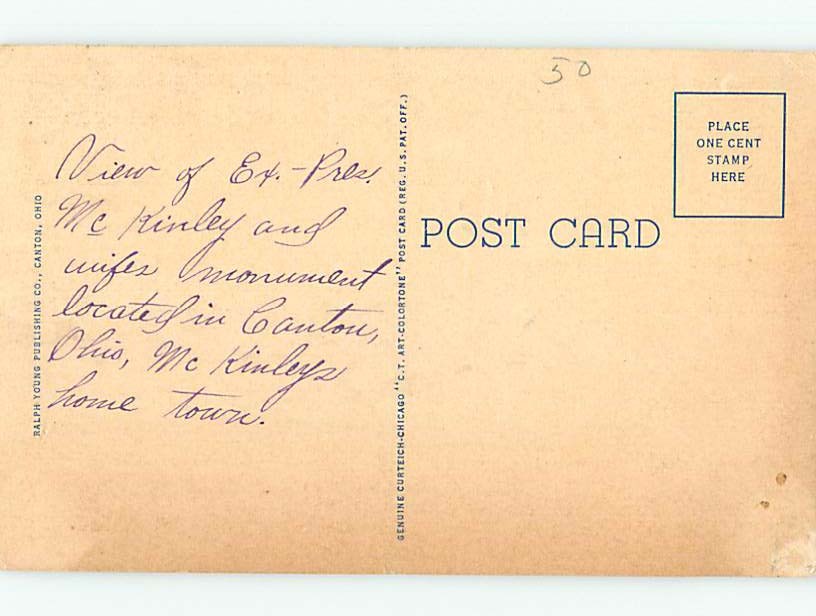 50
PLACE
ONE CENT
STAMP
HERE
POST CARD
View of Ex.-Pres.
Mc Kinley and
wifes monument
located in Canton,
Ohio, Mc Kinleys
home town.
RALPH YOUNG PUBLISHING CO., CANTON, OHIO
GENUINE CURTEICH-CHICAGO "C.T. ART-COLORTONE" POST CARD (REG. U.S. PAT. OFF.)